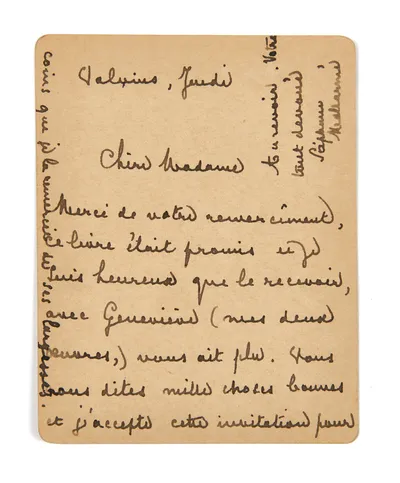 Valvins, Jeudi
Chère Madame
Merci de votre remerciment,
le livre était promis et je
suis heureux que le recevoir,
avec Geneviève (mes deux
œuvres,) vous ait plu. Vous
nous dites mille choses bonnes
et j'accepte cette invitation pour
coins que je la remercie de ses largesses.
Au revoir. Votre
tout dévoué
Stéphane
Mallarmé